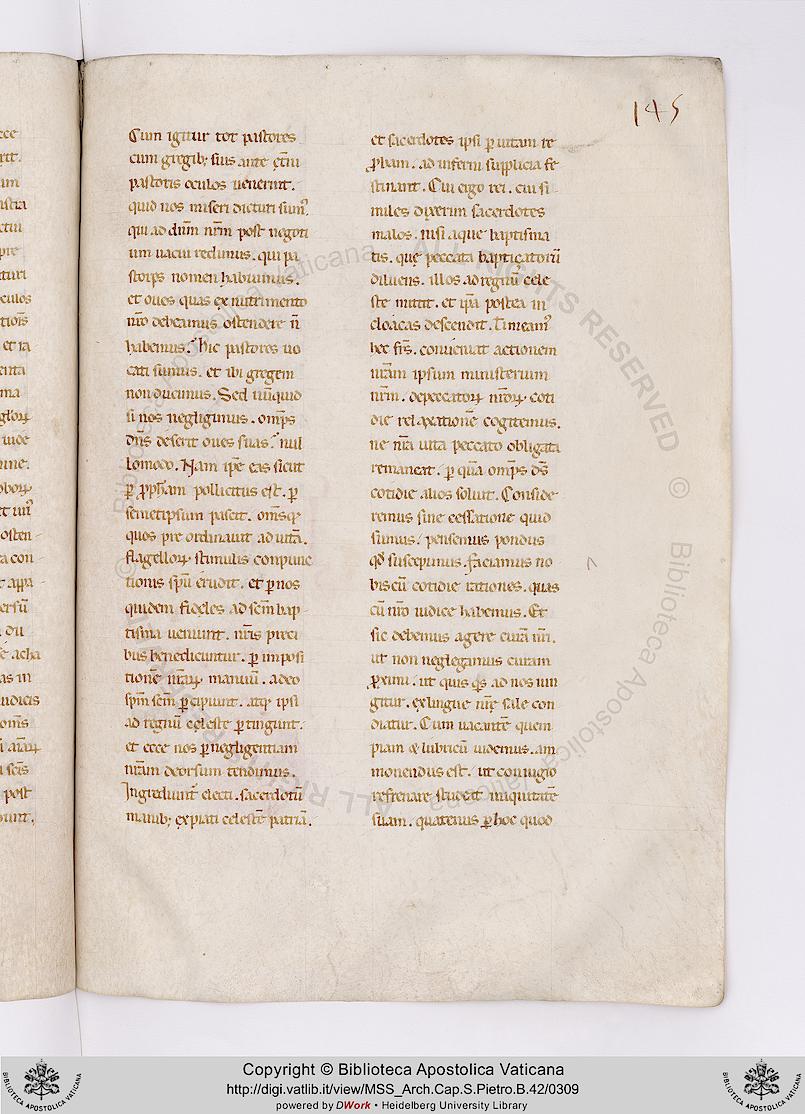 145
Cum igitur tot pastores
cum gregib; suis ante etn̄i
pastoris oculos uenerint.
quid nos miseri dicturi sum᷒.
qui ad dūm nr̄m post negoti
um uacui redimus. qui pa
stores nomen habuimus.
et oues quas ex nutrimento
nr̄o debeamus ostendere n̄
habemus. hic pastores uo
cati sumus. et ibi gregem
non ducimus. Sed nūquid
si nos negligimus. omp̄s
dn̄s deserit oues suas. nul
lomodo. Nam ip̄e eas sicut
ꝑ ꝓph̄am pollicitus est. ꝑ
semetipsum pascit. omēsq;
quos pre ordinauit ad uitā.
flagelloꝝ stimulis conpunc
tionis sp̄u erudit. et ꝑ nos
quidem fideles ad sc̄m bap
tisma ueniunt. nr̄is preci
bus benedicuntur. ꝑ imposi
tionē nr̄aꝝ manuū. a deo
sp̄m sc̄m ꝑcipiunt. atq; ipsi
ad regnū celeste ꝑtingunt.
et ecce nos ꝑ negligentiam
nr̄am deorsum tendimus.
Ingrediunt̄ electi. sacerdotū
manib; expiati celestē patriā.
et sacerdotes ipsi ꝑ uitam re
ꝓbam. ad inferni supplicia fe
stinant. Cui ergo rei. cui si
miles dixerim sacerdotes
malos. nisi aque baptisma
tis. que peccata baptizatorū
diluens. illos ad regnū cele
ste mittit. et ip̄a postea in
cloacas descendit. Timeam᷒
hec fr̄s. conueniat actionem
nr̄am ipsum ministerium
nr̄m. de peccatoꝝ nr̄oꝝ coti
die relaxatione cogitemus.
ne nr̄a uita peccato obligata
remaneat. ꝑ quā omp̄s ds̄
cotidie alios soluit. Conside
remus sine cessatione quid
sumus. pensemus pondus
qd̄ suscepimus. faciamus no
biscū cotidie rationes. quas
cū nr̄o iudice habemus. Et
sic debemus agere curā nr̄i.
ut non neglegamus curam
ꝓximi. ut quis qs̄ ad nos iun
gitur. ex lingue nr̄e sale con
diatur. Cum uacantē quem
piam & lubricū uidemus. am
monendus est. ut coniugio
refrenare studeat iniquitatē
suam. quatenus ꝑ hoc quod
Copyright © Biblioteca Apostolica Vaticana
http://digi.vatlib.it/view/MSS_Arch.Cap.S.Pietro.B.42/0309
powered by DWork • Heidelberg University Library